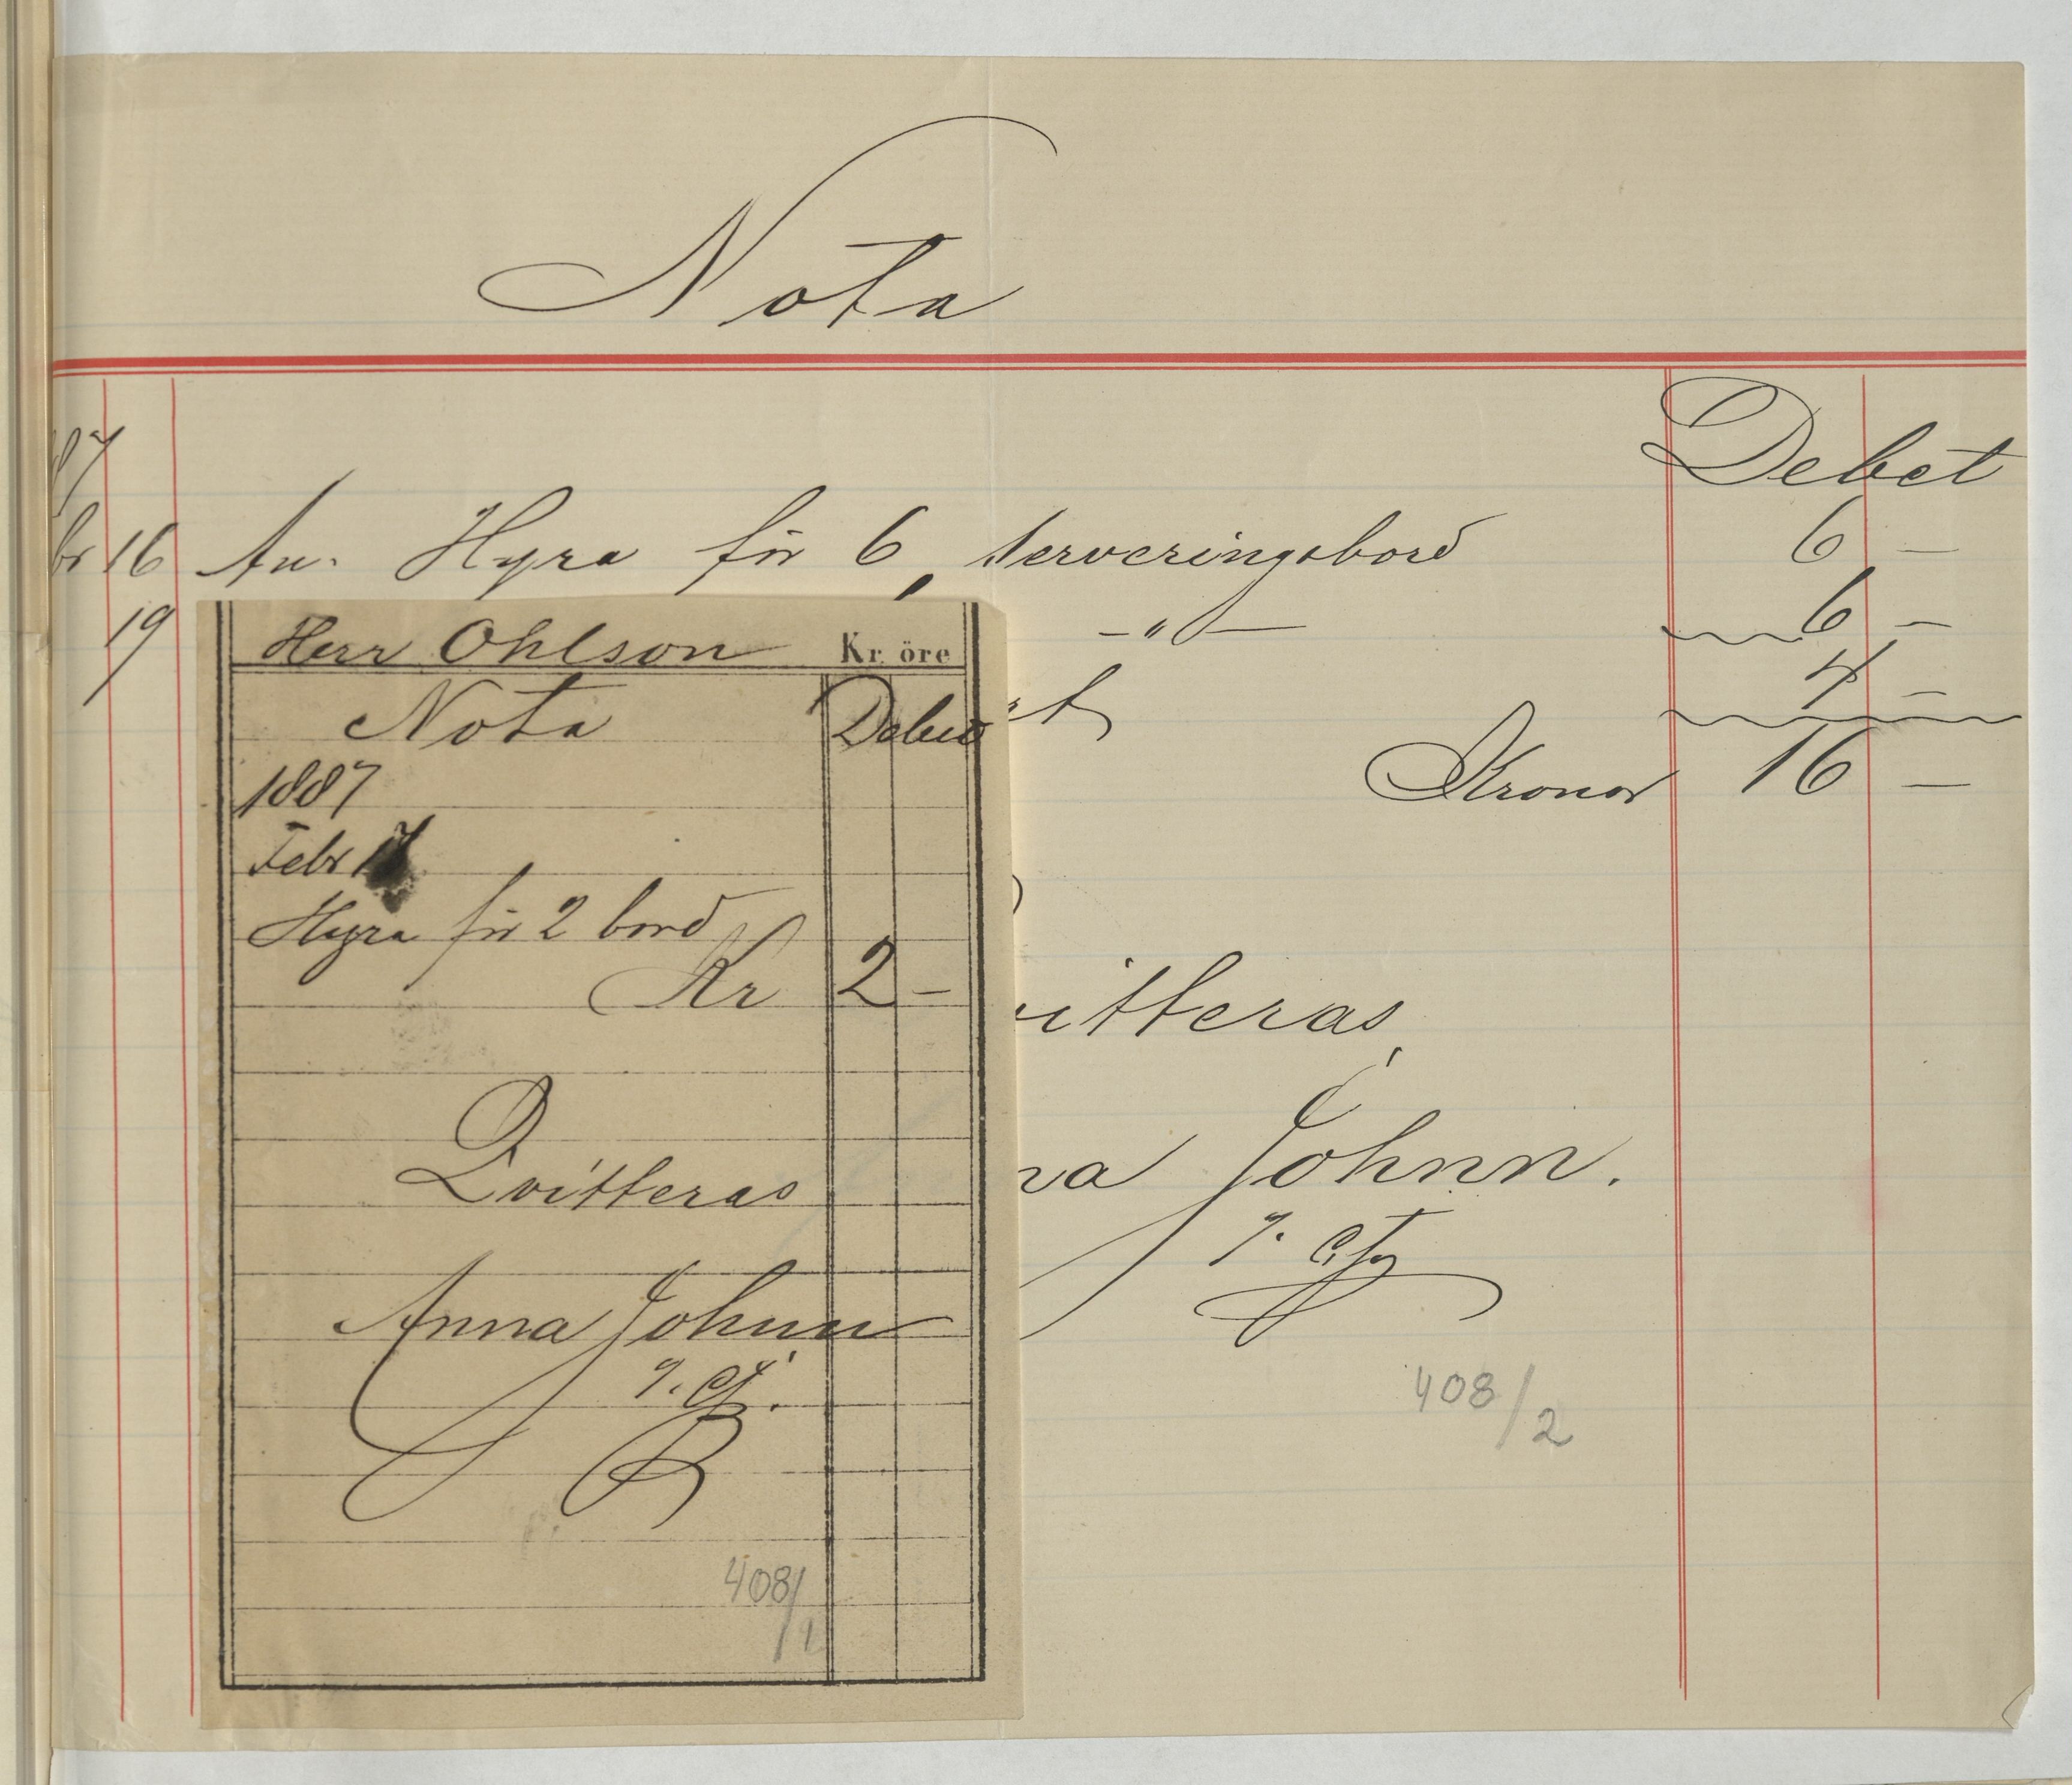 Nota
87
Debet
br 16 An. Hyra för 6 serveringsbord 6 —
19 —"— 6 —
4 —
Kronor 16 —
itteras
na Johnn.
408/2
Herr Ohlson Kr öre
Nota Debet
1887
Febr
Hyra för 2 bord
Kr 2 —
Qvitteras
Anna Johnn
408/1